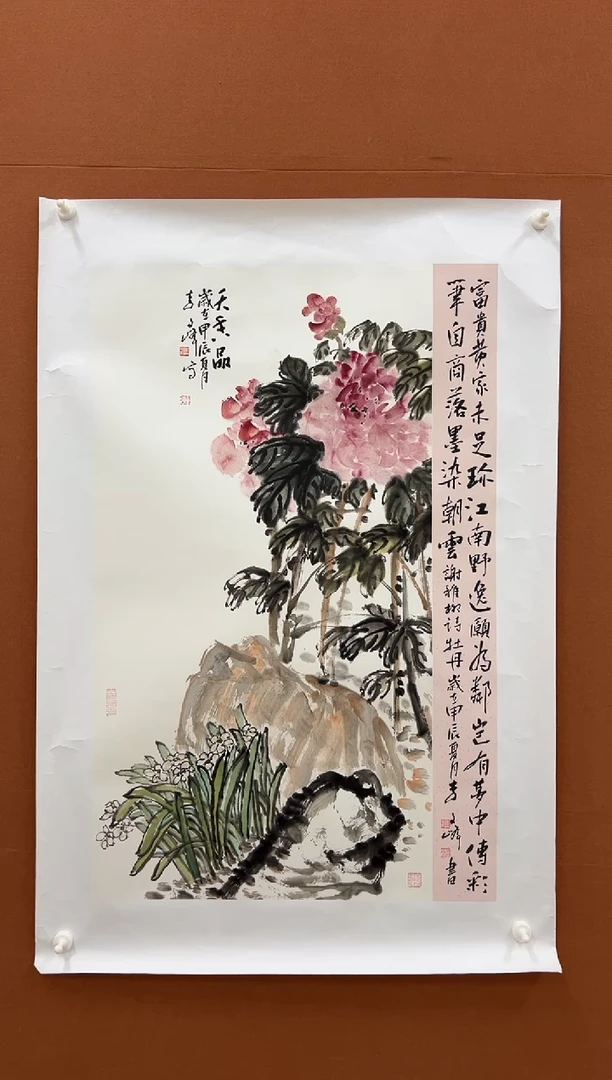 富貴黄家未足珍江南野逸願為鄰豈有夢中傳彩
筆自商落墨染朝雲謝稚柳詩牡丹歲在甲辰夏月文峰書
天香一品
歲在甲辰夏月
文峰寫